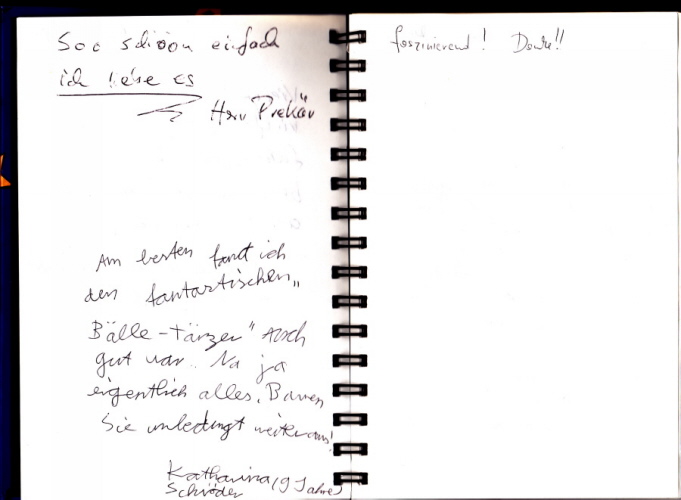 Soo schöön einfach
ich liebe es
Herr Prekär
Am besten fand ich
den fantastischen „
Bälle-Tänzer" Auch
gut war.. Na ja
eigentlich alles. Bauen
Sie unbedingt weiter aus!
Katharina (9 Jahre)
Schröder
faszinierend! Danke!!